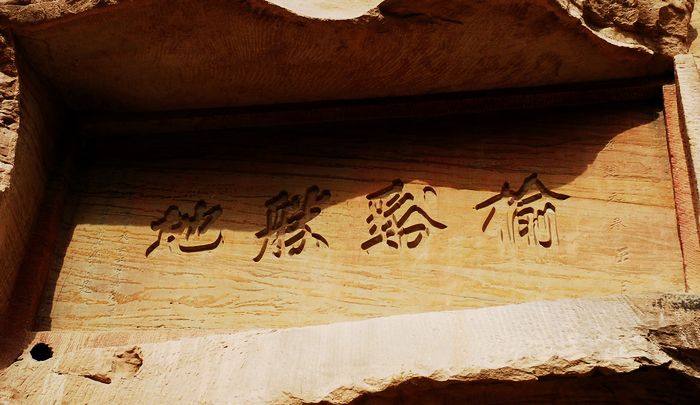 榆谿勝地